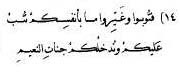 ١٤) فتوبوا وغيروا ما بأنفسكم نتب
عليكم وندخلكم جنات النعيم